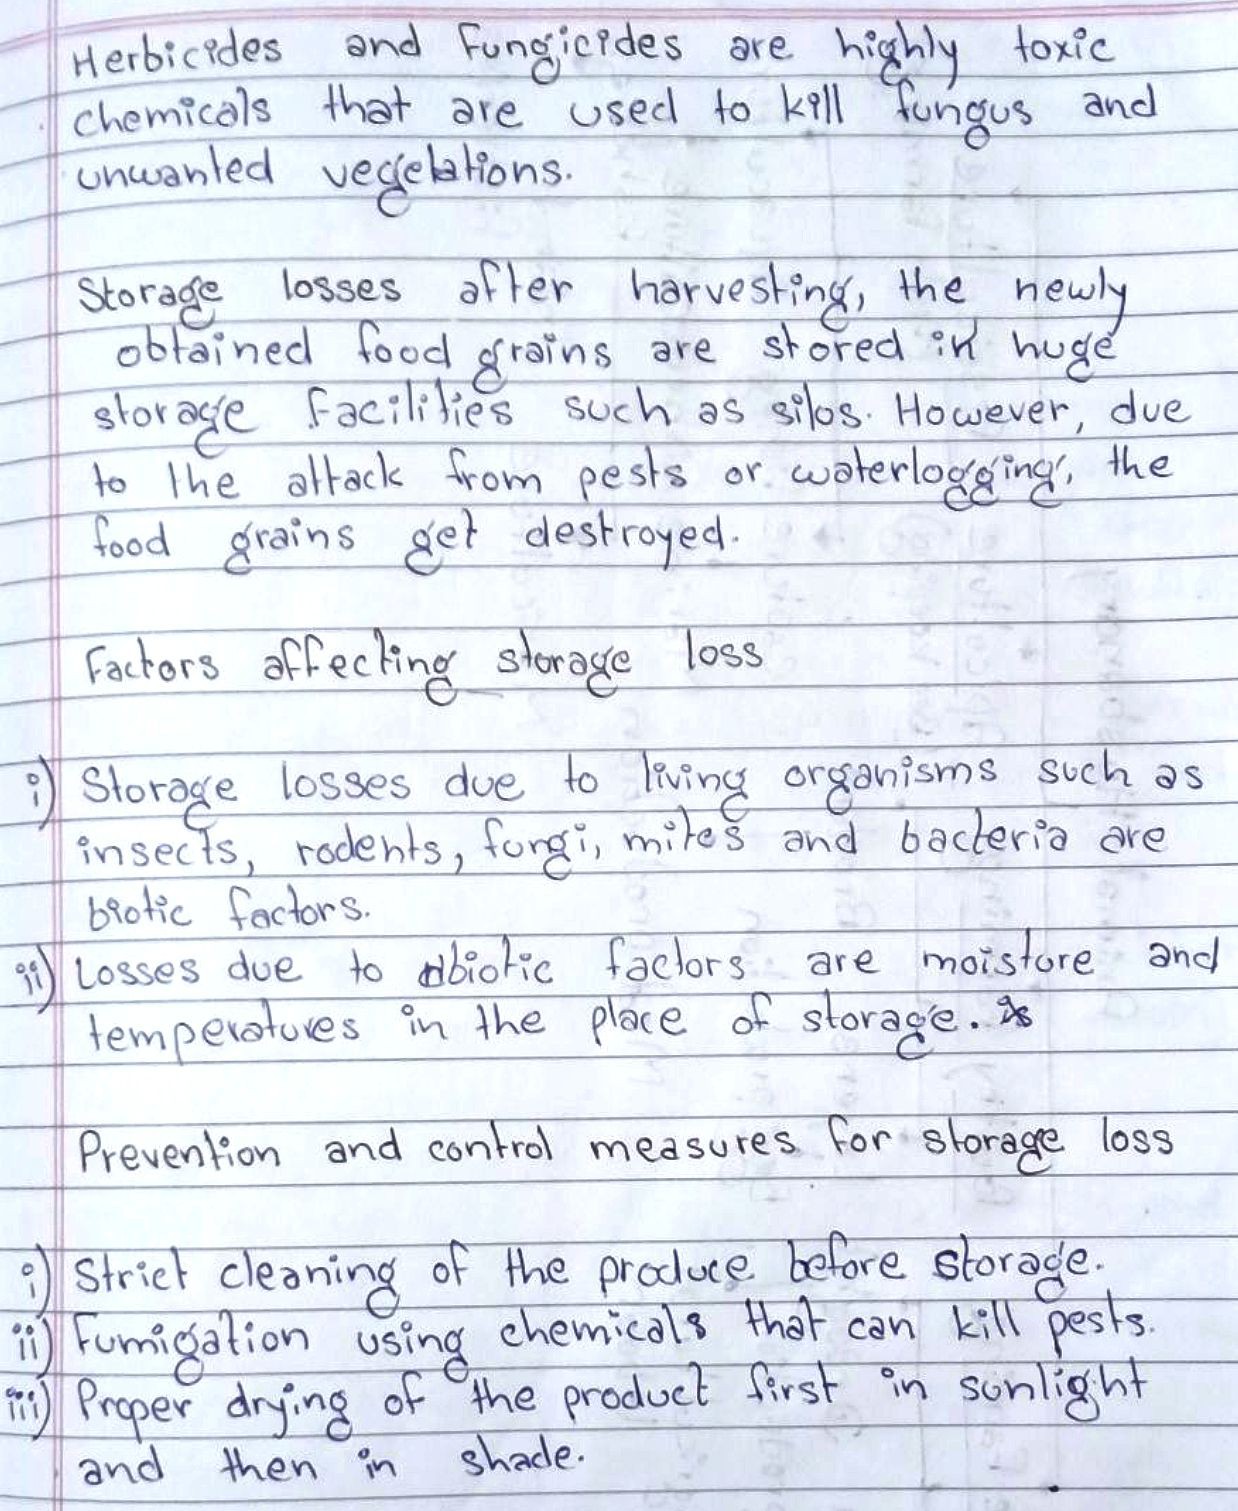 Herbicides and Fungicides are highly toxic
chemicals that are used to kill fungus and
unwanted vegetations.
Storage losses after harvesting, the newly
obtained food grains are stored in huge
storage facilities such as silos. However, due
to the attack from pests or waterlogging, the
food grains get destroyed.
Factors affecting storage loss
i) Storage losses due to living organisms such as
insects, rodents, fungi, mites and bacteria are
biotic factors.
ii) Losses due to abiotic factors are moisture and
temperatures in the place of storage.
Prevention and control measures for storage loss
i) Strict cleaning of the produce before storage.
ii) Fumigation using chemicals that can kill pests.
iii) Proper drying of the product first in sunlight
and then in shade.